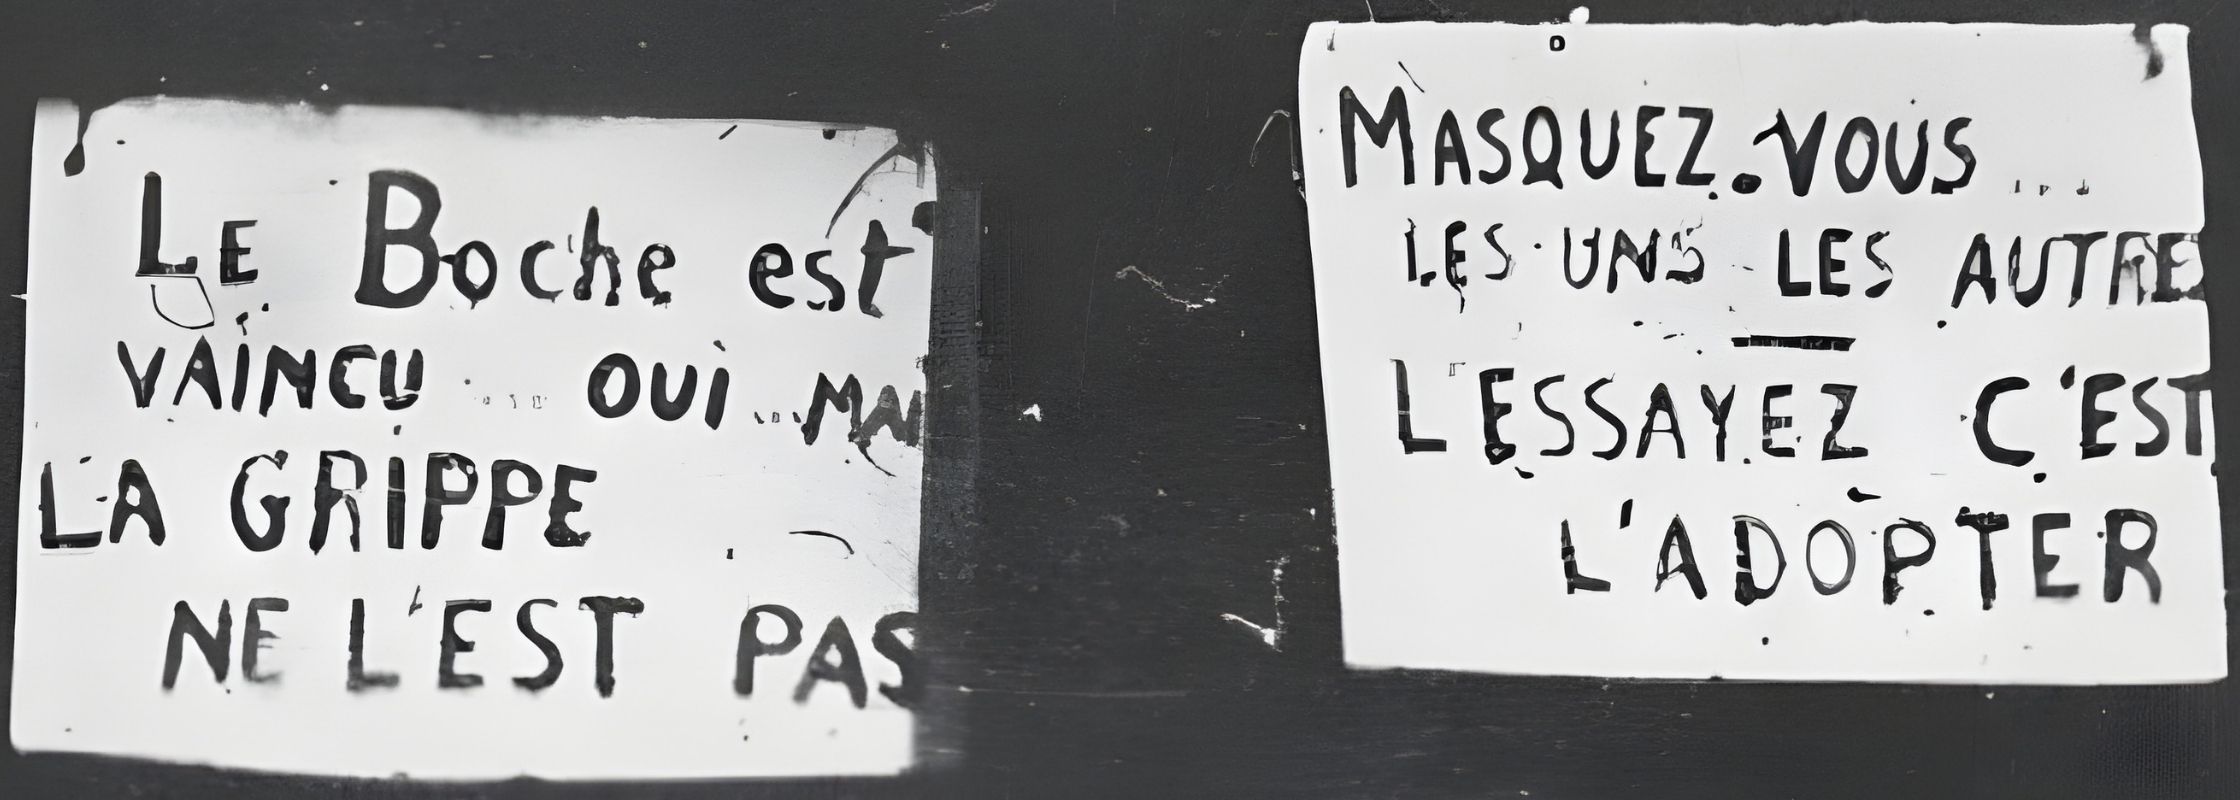 Le Boche est
VAINCU ... OUI ... MAI
LA GRIPPE
NE L'EST PAS
MASQUEZ-VOUS ...
LES UNS LES AUTRES
L'ESSAYEZ C'EST
L'ADOPTER